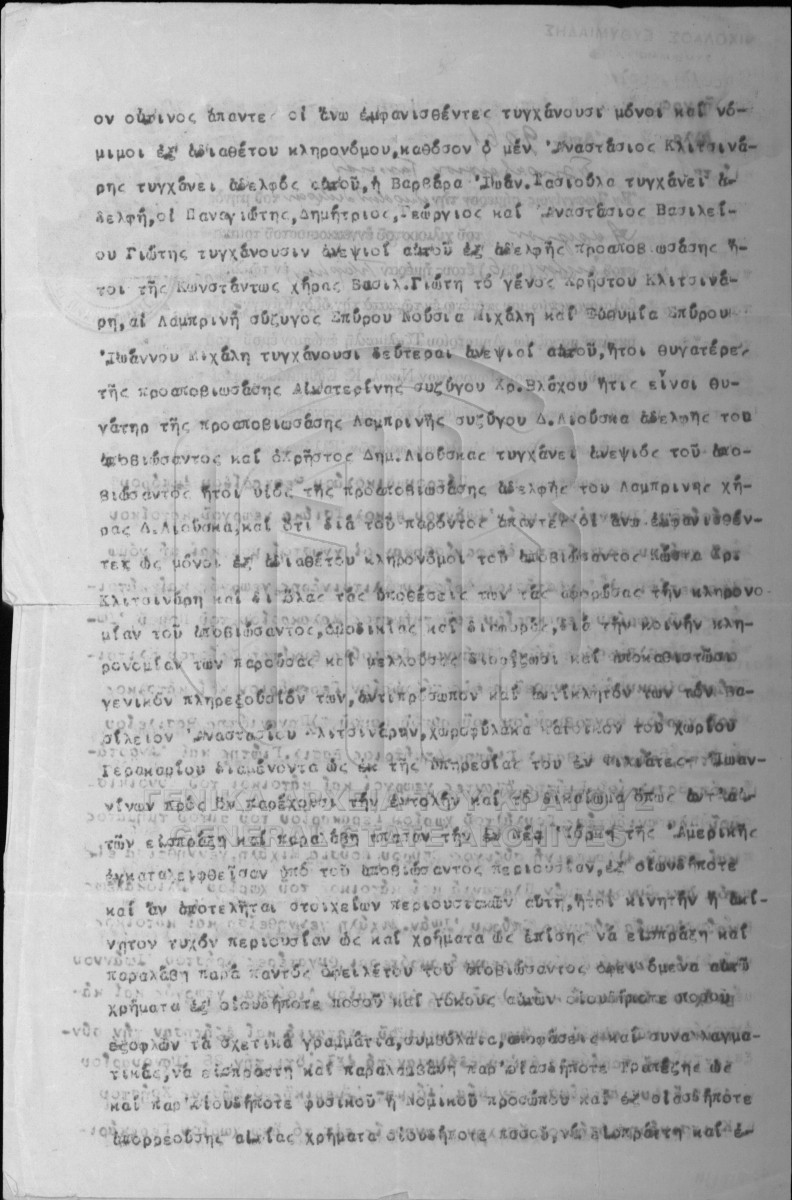 ον ούτινος άπαντες οί άνω έμφανισθέντες τυγχάνουσι μόνοι καί νό-
μιμοι έξ άδιαθέτου κληρονόμου,καθόσον ό μέν Άναστάσιος Κλιτσινά-
ρης τυγχάνει άδελφός αύτοϋ,ή Βαρβάρα Ίωάν.Τασιούλα τυγχάνει ά-
δελφή,οί Παναγιώτης,Δημήτριος,Γεώργιος καί Άναστάσιος Βασιλεί-
ου Γιώτης τυγχάνουσιν άνεψιοί αύτοϋ έξ άδελφής προαποβιωσάσης ή-
τοι τής Κωνστάντως χήρας Βασιλ.Γιώτη τό γένος Χρήστου Κλιτσινά-
ρη,αί Λαμπρινή σύζυγος Σπύρου Νούσια Μιχάλη καί Εύθυμία Σπύρου
Ίωάννου Μιχάλη τυγχάνουσι δεύτεραι άνεψιοί αύτοϋ,ήτοι θυγατέρες
τής προαποβιωσάσης Αίκατερίνης συζύγου Χρ.Βλάχου ήτις εϊναι θυ-
γάτηρ τής προαποβιωσάσης Λαμπρινής συζύγου Δ.Λιούσκα άδελφής του
άποβιώσαντος καί όΧρήστος Δημ.Λιούσκας τυγχάνει άνεψιός τοϋ άπο-
βιώσαντος ήτοι υίός τής προαποβιωσάσης άδελφής του Λαμπρινης χή-
ρας Δ.Λιούσκα,καί ότι διά τοϋ παρόντος άπαντες οί άνω έμφανισθέν-
τες ώς μόνοι έξ άδιαθέτου κληρονόμοι τοϋ άποβιώσαντος Κώστα Χρ.
Κλιτσινάρη καί δι όλας τάς ύποθέσεις των τάς άφορώσας τήν κληρονο-
μίαν τοϋ άποβιώσαντος,όμοδικίας καί διαφοράς,διά τήν κοινήν κλη-
ρονομίαν των παρούσας καί μελλούσας διορίζωσι καί άποκαθιστώσι
γενικόν πληρεξούσιόν των,άντιπρόσωπον καί άντίκλητόν των τόν Βα-
σίλειον Άναστασίου Κλιτσινάρην,χωροφύλακα κάτοικον τοϋ χωρίου
Γερακαρίου διαμένοντα ώς έκ τής ύπηρεσίας του έν Φιλιάτες- Ίωαν-
νίνων πρός όν παρέχουσι τήν έντολήν καί τό δικαίωμα όπως άντ'αύ-
τών είσπράξη καί παραλάβη άπασαν τήν έν Νέα Ύόρκη τής Άμερικής
έγκαταλειφθείσαν ύπό τοϋ άποβιώσαντος περιουσίαν,έξ οίωνδήποτε
καί άν άποτελήται στοιχείων περιουσιακών αύτη,ήτοι κινητήν ή άκί-
νητον τυχόν περιουσίαν ώς καί χρήματα ώς έπίσης νά είσπράξη καί
παραλάβη παρά παντός όφειλέτου τοϋ άποβιώσαντος όφειλόμενα αύτϋ
χρήματα έξ οίουδήποτε ποσοϋ καί τόκους αύτών οίουδήποτε ποσοϋ
έξοφλών τά σχετικά γραμμάτια,συμβόλαια,άποφάσεις καί συναλλαγμα-
τικάς,νά είσπράττη καί παραλαμβάνη παρ'οίασδήποτε Τραπέζης ώς
καί παρ'οίουδήποτε φυσικοϋ ή νομικοϋ προσώπου καί έξ οίασδήποτε
άπορρεούσης αίτίας χρήματα οίουδήποτε ποσοϋ,νά είσπράττη καί έ-
ΓΕΝΙΚΑ ΑΡΧΕΙΑ ΤΟΥ ΚΡΑΤΟΥΣ
GENERAL STATE ARCHIVES